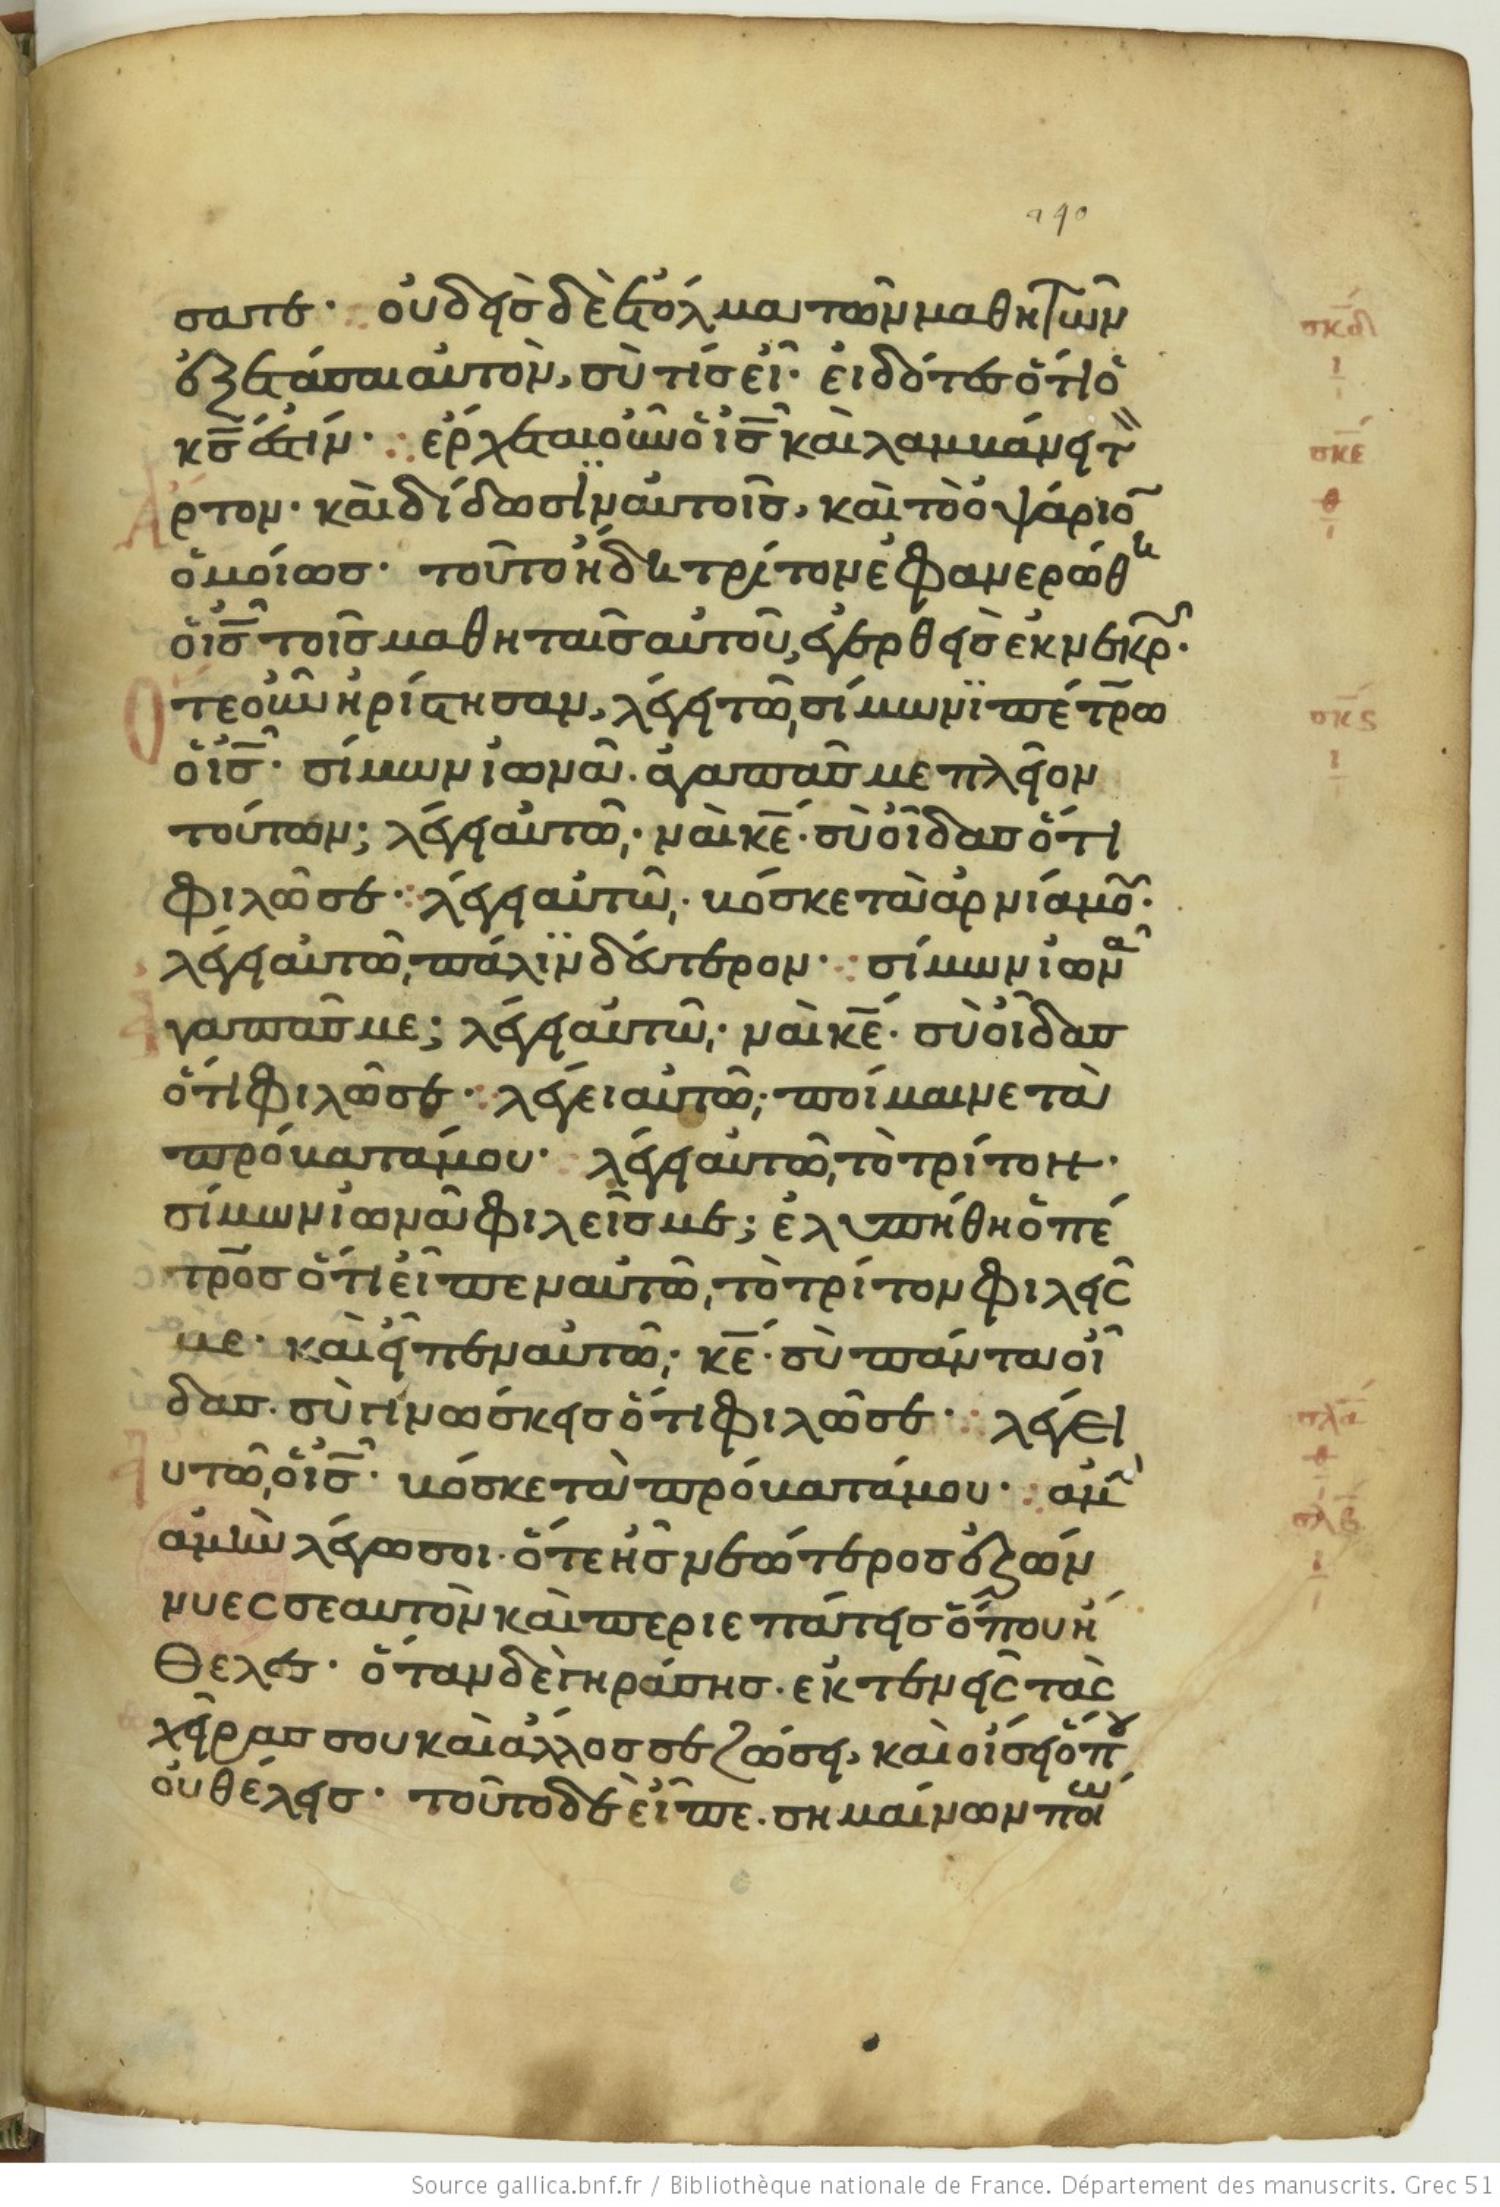 σατε· οὐδεὶσ δὲ ἐτόλμα τῶν μαθητῶν
ἐξετάσαι αὐτὸν, σὺ τίσ εἶ· εἰδότεσ ὅτι ὁ
κ̅σ̅ ἐστιν· ἔρχεται οὖν ὁ ἰ̅σ̅ καὶ λαμβάνει τ
ἄρτον· καὶ δίδωσϊν αὐτοῖσ, καὶ τὸ ὀψάριο̅
ὁμοίωσ· τοῦτο ἤδη τρίτον ἐφανερώθη
ὁ ἰ̅σ̅ τοῖσ μαθηταῖσ αὐτοῦ, ἐγερθεὶσ ἐκ νεκρ·
Ὅτε οὖν ἠρίστησαν, λέγει τῶ σίμωνϊ πέτρω
ὁ ἰ̅σ̅· σίμων ἰωνᾶ· ἀγαπᾶσ με πλεῖον
τούτων; λέγει αὐτῶ· ναὶ κ̅ε̅· σὺ οἶδασ ὅτι
φιλῶ σε· λέγει αὐτῶ· βόσκε τὰ ἀρνία μο̅·
λέγει αὐτῶ πάλϊν δεύτερον· σίμων ἰωνᾶ
ἀγαπᾶσ με; λέγει αὐτῶ· ναὶ κ̅ε̅· σὺ οἶδασ
ὅτι φιλῶ σε· λέγει αὐτῶ· ποίμαινε τὰ
πρόβατά μου· λέγει αὐτῶ τὸ τρίτον·
σίμων ἰωνᾶ φιλεῖσ με; ἐλυπήθη ὁ πέ
τροσ ὅτι εἶπεν αὐτῶ τὸ τρίτον φιλεῖσ
με· καὶ εἶπεν αὐτῶ· κ̅ε̅· σὺ πάντα οἶ
δασ· σὺ γινώσκεισ ὅτι φιλῶ σε· λέγει
αὐτῶ ὁ ἰ̅σ̅· βόσκε τὰ πρόβατά μου· ἀμὴν
ἀμὴν λέγω σοι· ὅτε ἦσ νεώτεροσ ἐζών
νυεσ σεαυτὸν καὶ περιεπάτεισ ὅπου ἤ
θελεσ· ὅταν δὲ γηράσησ· ἐκτενεῖσ τὰσ
χεῖρασ σου καὶ ἄλλοσ σε ζώσει, καὶ οἴσει ὅπου
οὐ θέλεισ· τοῦτο δὲ εἶπε· σημαίνων ποίω
σκδ
ι
σκε
θ
σκϛ
ι
σκζ
θ
σκη
ι
Source gallica.bnf.fr / Bibliothèque nationale de France. Département des manuscrits. Grec 51